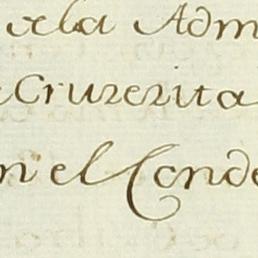 dela Adm
Cruzezita
n el Conde